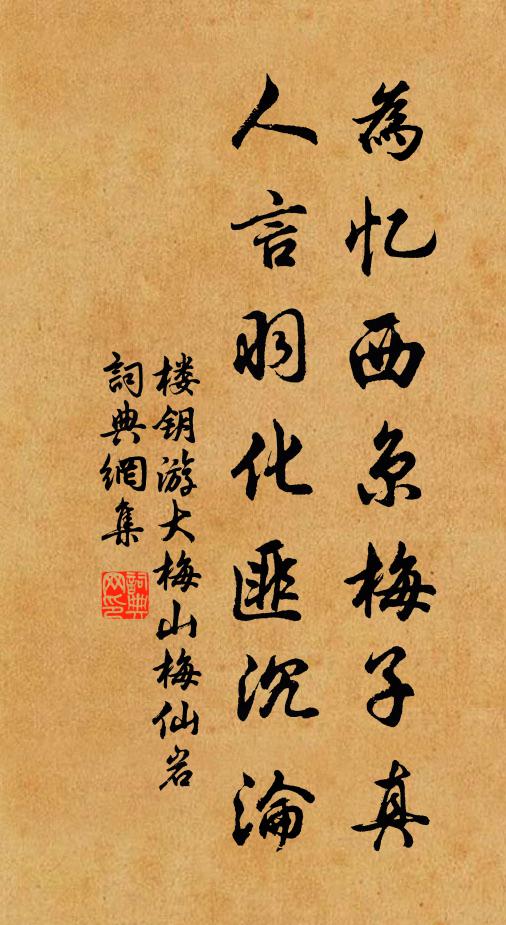 為忆西京梅子真
人言羽化匪沉淪
楼钥游大梅山梅仙岩
詞典網集
詞典网印